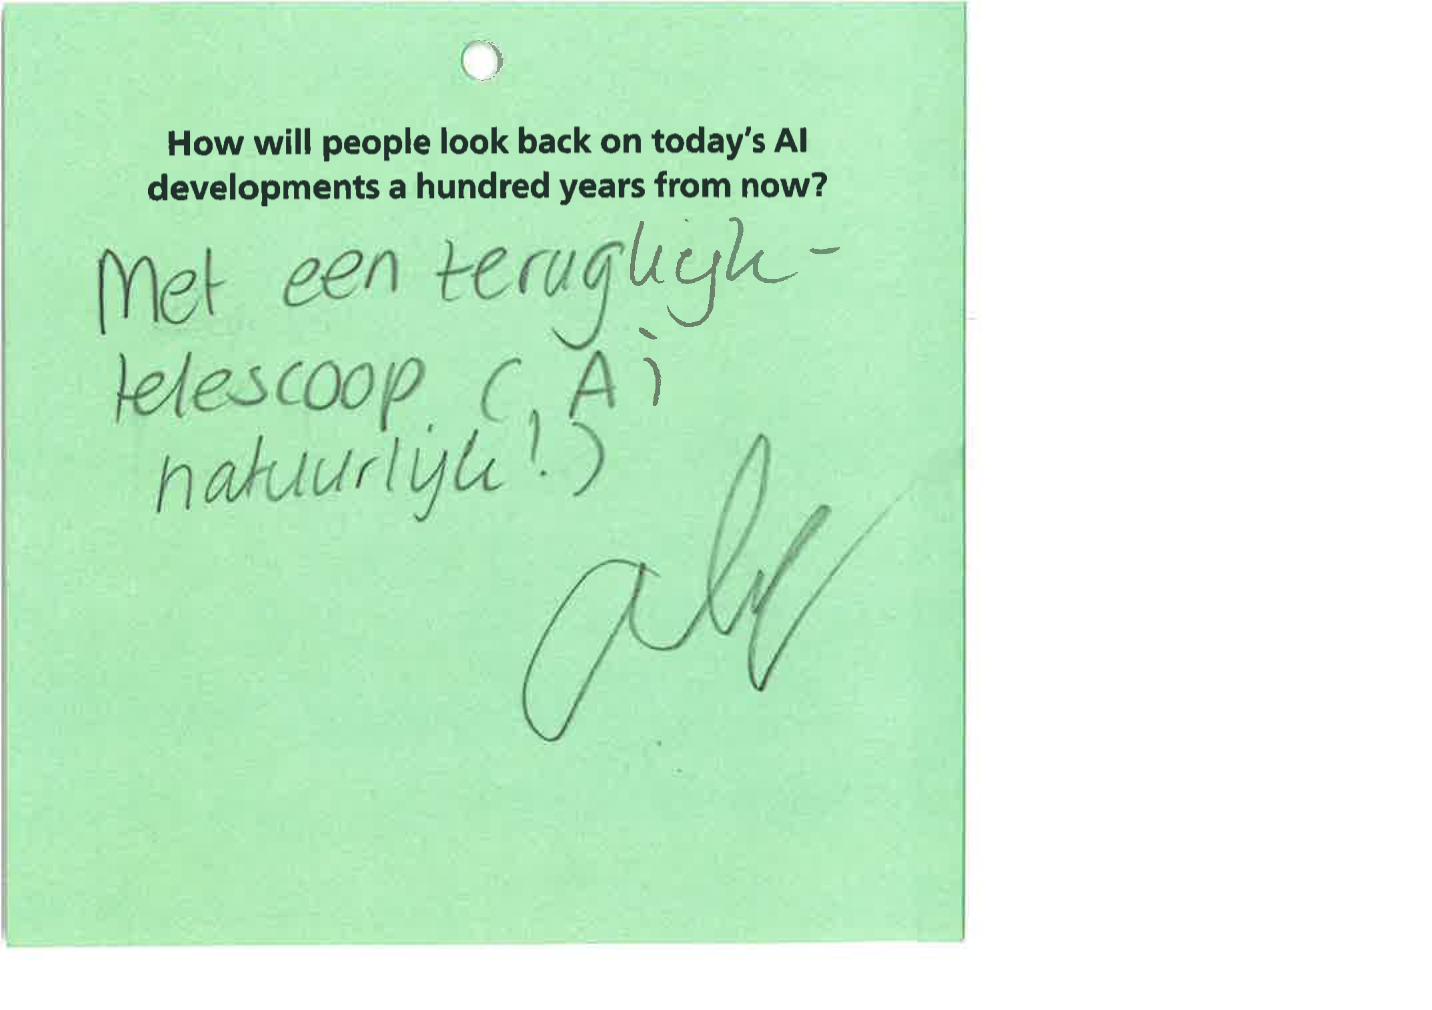 How will people look back on today's AI
developments a hundred years from now?
Met een terugkijk-
telescoop (Ai
natuurlijk!)